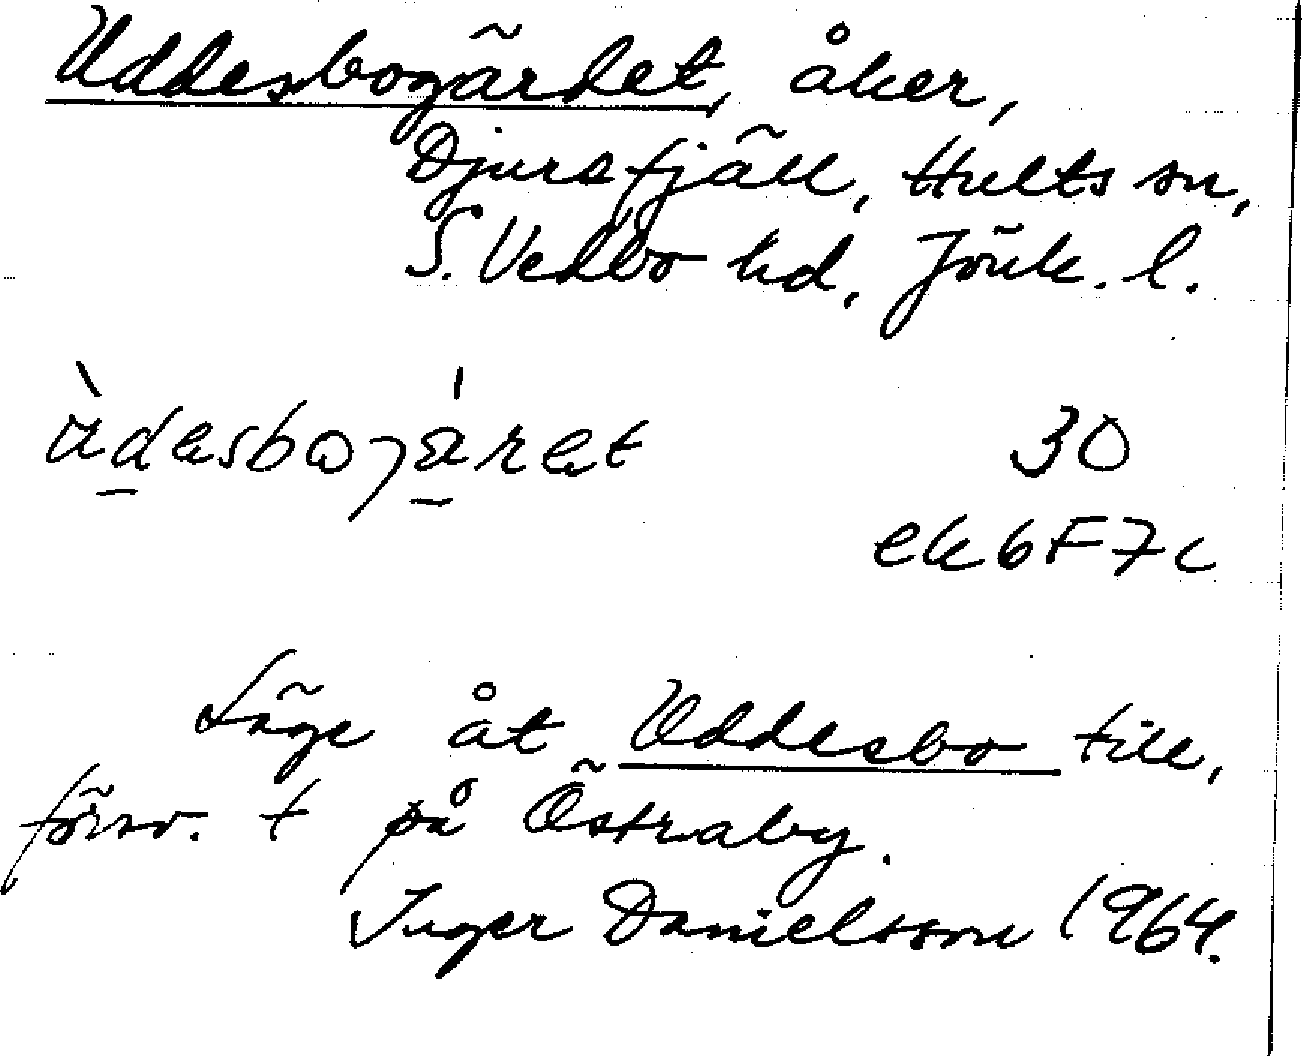 Uddesbogärdet, åker,
Djursfjäll, Hults sn,
S. Vedbo hd, Jönk. l.
30
ek 6F7c
Läge åt Uddesbo till,
försv. t på Östraby.
Inger Danielsson 1964.